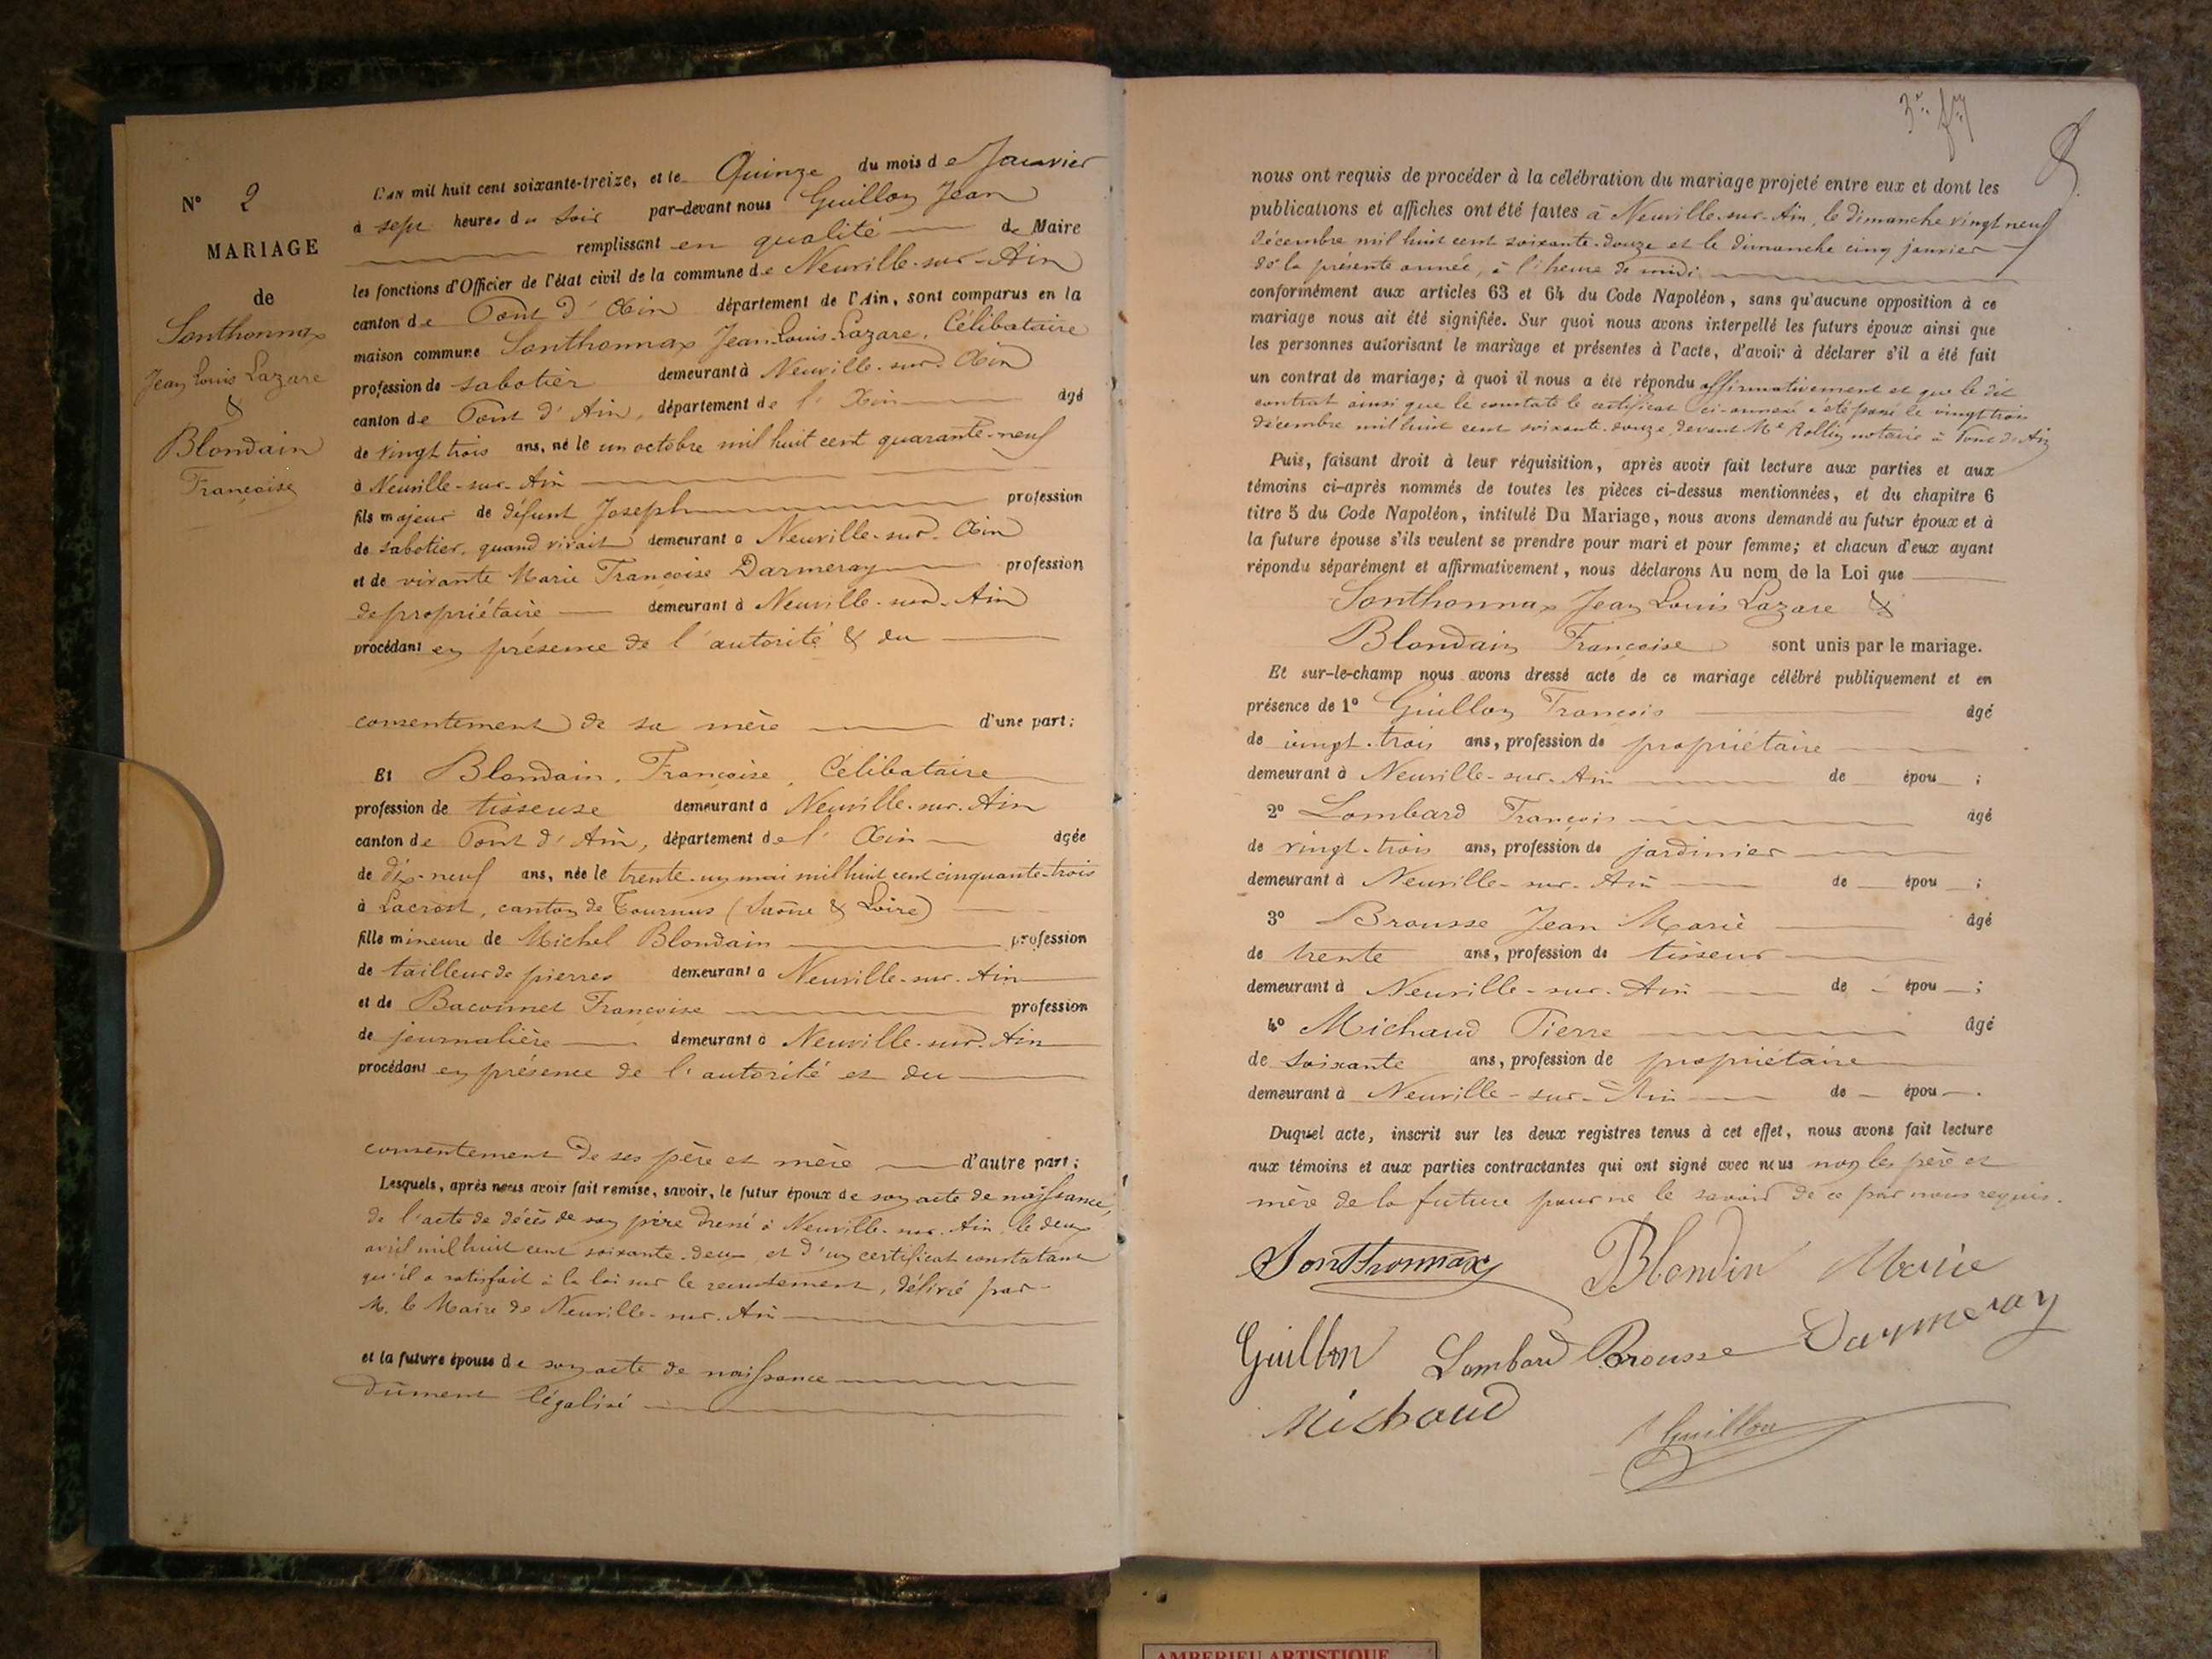 N° 2
MARIAGE
de
Sonthonnax
Jean Louis Lazare
&
Blondain
Françoise
L'AN mil huit cent soixante-treize, et le Quinze du mois de Janvier
à sept heures du Soir par-devant nous Guillon Jean
remplissant en qualité de Maire
les fonctions d'Officier de l'état civil de la commune de Neuville-sur-Ain
canton de Pont d'Ain département de l'Ain, sont comparus en la
maison commune Sonthonnax Jean-Louis-Lazare, Célibataire
profession de sabotier demeurant à Neuville-sur-Ain
canton de Pont d'Ain, département de l'Ain âgé
de vingt trois ans, né le un octobre mil huit cent quarante-neuf
à Neuville-sur-Ain
fils majeur de défunt Joseph profession
de sabotier, quand vivait demeurant à Neuville-sur-Ain
et de vivante Marie Françoise Darmeray profession
de propriétaire demeurant à Neuville-sur-Ain
procédant en présence de l'autorité & du
consentement de sa mère d'une part;
Et Blondain, Françoise, Célibataire
profession de tisseuse demeurant à Neuville-sur-Ain
canton de Pont d'Ain, département de l'Ain âgée
de dix-neuf ans, née le trente-un mai mil huit cent cinquante-trois
à Lacrost, canton de Tournus (Saône & Loire)
fille mineure de Michel Blondain profession
de tailleur de pierres demeurant à Neuville-sur-Ain
et de Baconnet Françoise profession
de journalière demeurant à Neuville-sur-Ain
procédant en présence de l'autorité et du
consentement de ses père et mère d'autre part;
Lesquels, après nous avoir fait remise, savoir, le futur époux de son acte de naissance,
de l'acte de décès de son père dressé à Neuville-sur-Ain le deux
avril mil huit cent soixante-deux et d'un certificat constatant
qu'il a satisfait à la loi sur le recrutement, délivré par
M. le Maire de Neuville-sur-Ain
et la future épouse de son acte de naissance
dûment légalisé
nous ont requis de procéder à la célébration du mariage projeté entre eux et dont les
publications et affiches ont été faites à Neuville-sur-Ain, le dimanche vingt neuf
décembre mil huit cent soixante-douze et le dimanche cinq janvier
de la présente année, à l'heure de midi
conformément aux articles 63 et 64 du Code Napoléon, sans qu'aucune opposition à ce
mariage nous ait été signifiée. Sur quoi nous avons interpellé les futurs époux ainsi que
les personnes autorisant le mariage et présentes à l'acte, d'avoir à déclarer s'il a été fait
un contrat de mariage; à quoi il nous a été répondu affirmativement et que le dit
contrat ainsi que le constate le certificat ci-annexé a été passé le vingt trois
décembre mil huit cent soixante-douze, devant Me Rollin notaire à Pont d'Ain
Puis, faisant droit à leur réquisition, après avoir fait lecture aux parties et aux
témoins ci-après nommés de toutes les pièces ci-dessus mentionnées, et du chapitre 6
titre 5 du Code Napoléon, intitulé Du Mariage, nous avons demandé au futur époux et à
la future épouse s'ils veulent se prendre pour mari et pour femme; et chacun d'eux ayant
répondu séparément et affirmativement, nous déclarons Au nom de la Loi que
Sonthonnax Jean Louis Lazare &
Blondain Françoise sont unis par le mariage.
Et sur-le-champ nous avons dressé acte de ce mariage célébré publiquement et en
présence de 1° Guillon François âgé
de vingt-trois ans, profession de propriétaire
demeurant à Neuville-sur-Ain de épou ;
2° Lombard François âgé
de vingt-trois ans, profession de jardinier
demeurant à Neuville-sur-Ain de épou ;
3° Brousse Jean Marie âgé
de trente ans, profession de tisseur
demeurant à Neuville-sur-Ain de épou ;
4° Michaud Pierre âgé
de soixante ans, profession de propriétaire
demeurant à Neuville-sur-Ain de épou .
Duquel acte, inscrit sur les deux registres tenus à cet effet, nous avons fait lecture
aux témoins et aux parties contractantes qui ont signé avec nous non les père et
mère de la future pour ne le savoir de ce par nous requis.
Sonthonnax Blondin Marie
Guillon Lombard Brousse Darmeray
Michaud
Guillon
AMBERIEU ARTISTIQUE